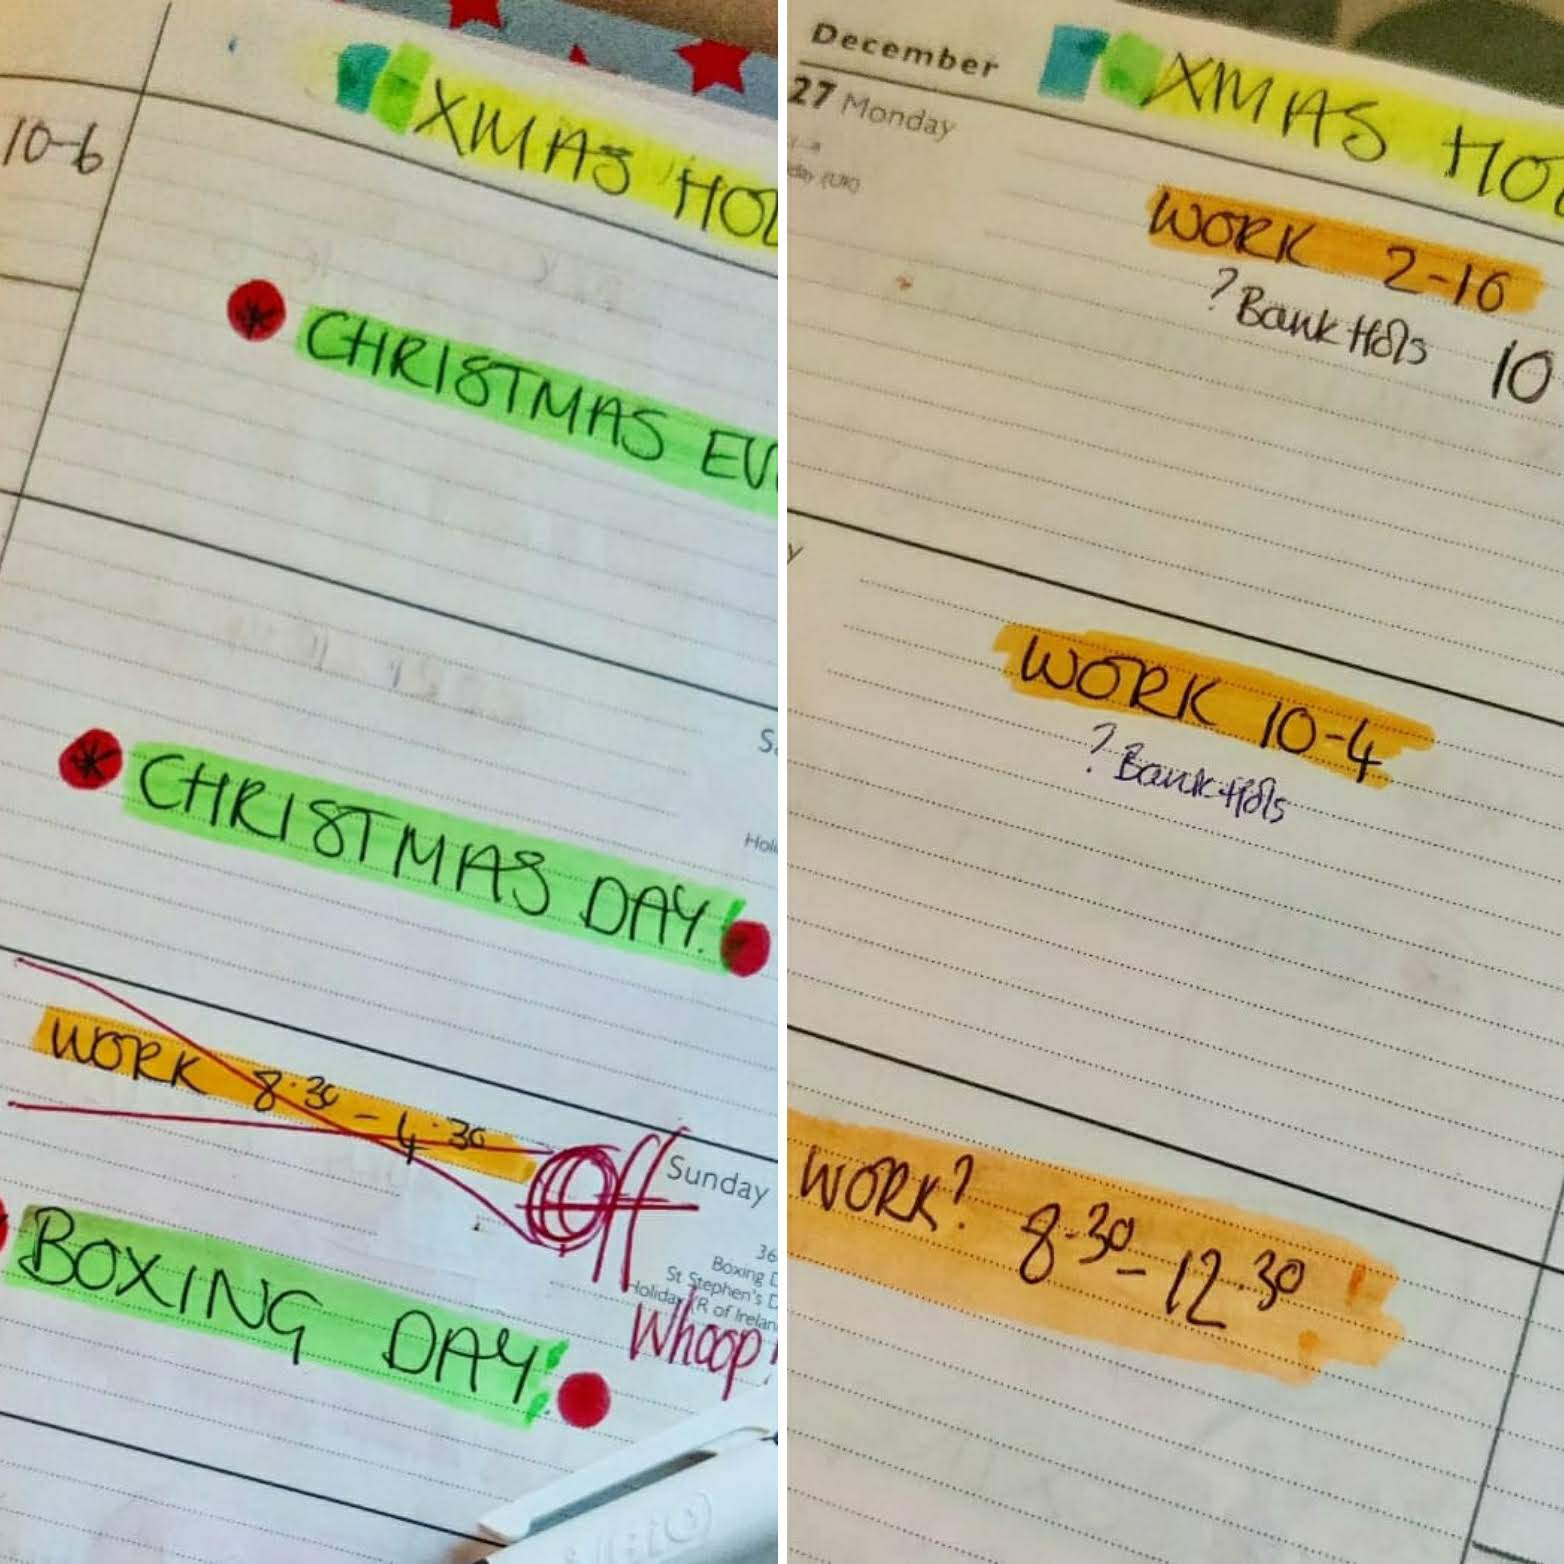 10-6
XMAS HOL
CHRISTMAS EV
CHRISTMAS DAY!
WORK 8.30 - 4.30
Off
Sunday
36
Boxing D
St Stephen's D
Holiday (R of Irelan
Whoop!
BOXING DAY!
December
27 Monday
day (UK)
XMAS HOL
WORK 2-10
? Bank Hols 10
y
WORK 10-4
? Bank Hols
WORK? 8.30 - 12.30 !